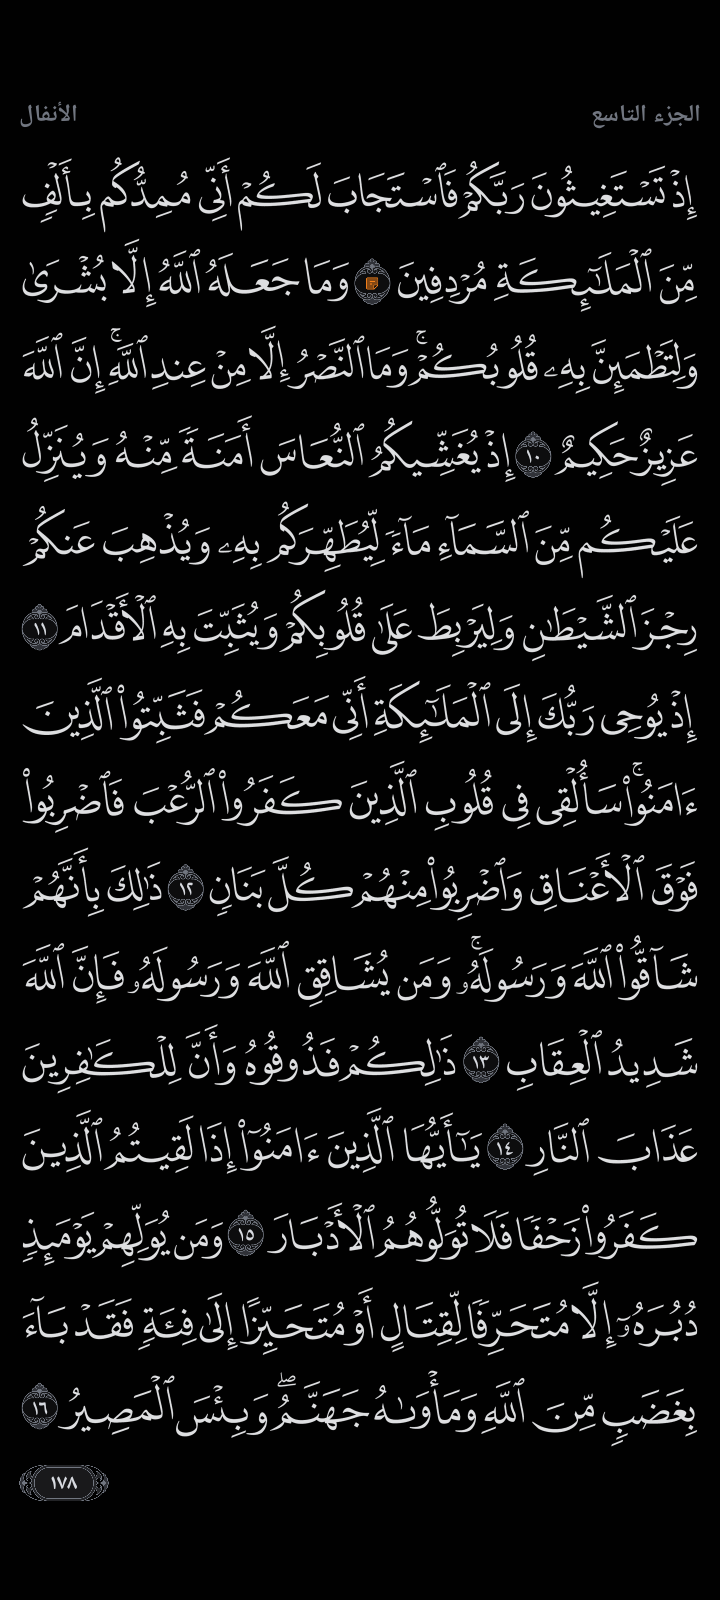 الجزء التاسع
الأنفال
إِذْ تَسْتَغِيثُونَ رَبَّكُمْ فَٱسْتَجَابَ لَكُمْ أَنِّى مُمِدُّكُم بِأَلْفٍ
مِّنَ ٱلْمَلَـٰٓئِكَةِ مُرْدِفِينَ وَمَا جَعَلَهُ ٱللَّهُ إِلَّا بُشْرَىٰ
وَلِتَطْمَئِنَّ بِهِۦ قُلُوبُكُمْ ۚ وَمَا ٱلنَّصْرُ إِلَّا مِنْ عِندِ ٱللَّهِ ۚ إِنَّ ٱللَّهَ
عَزِيزٌ حَكِيمٌ ١٠ إِذْ يُغَشِّيكُمُ ٱلنُّعَاسَ أَمَنَةً مِّنْهُ وَيُنَزِّلُ
عَلَيْكُم مِّنَ ٱلسَّمَآءِ مَآءً لِّيُطَهِّرَكُم بِهِۦ وَيُذْهِبَ عَنكُمْ
رِجْزَ ٱلشَّيْطَـٰنِ وَلِيَرْبِطَ عَلَىٰ قُلُوبِكُمْ وَيُثَبِّتَ بِهِ ٱلْأَقْدَامَ ١١
إِذْ يُوحِى رَبُّكَ إِلَى ٱلْمَلَـٰٓئِكَةِ أَنِّى مَعَكُمْ فَثَبِّتُوا۟ ٱلَّذِينَ
ءَامَنُوا۟ ۚ سَأُلْقِى فِى قُلُوبِ ٱلَّذِينَ كَفَرُوا۟ ٱلرُّعْبَ فَٱضْرِبُوا۟
فَوْقَ ٱلْأَعْنَاقِ وَٱضْرِبُوا۟ مِنْهُمْ كُلَّ بَنَانٍ ١٢ ذَٰلِكَ بِأَنَّهُمْ
شَآقُّوا۟ ٱللَّهَ وَرَسُولَهُۥ ۚ وَمَن يُشَاقِقِ ٱللَّهَ وَرَسُولَهُۥ فَإِنَّ ٱللَّهَ
شَدِيدُ ٱلْعِقَابِ ١٣ ذَٰلِكُمْ فَذُوقُوهُ وَأَنَّ لِلْكَـٰفِرِينَ
عَذَابَ ٱلنَّارِ ١٤ يَـٰٓأَيُّهَا ٱلَّذِينَ ءَامَنُوٓا۟ إِذَا لَقِيتُمُ ٱلَّذِينَ
كَفَرُوا۟ زَحْفًا فَلَا تُوَلُّوهُمُ ٱلْأَدْبَارَ ١٥ وَمَن يُوَلِّهِمْ يَوْمَئِذٍ
دُبُرَهُۥٓ إِلَّا مُتَحَرِّفًا لِّقِتَالٍ أَوْ مُتَحَيِّزًا إِلَىٰ فِئَةٍ فَقَدْ بَآءَ
بِغَضَبٍ مِّنَ ٱللَّهِ وَمَأْوَىٰهُ جَهَنَّمُ ۖ وَبِئْسَ ٱلْمَصِيرُ ١٦
١٧٨